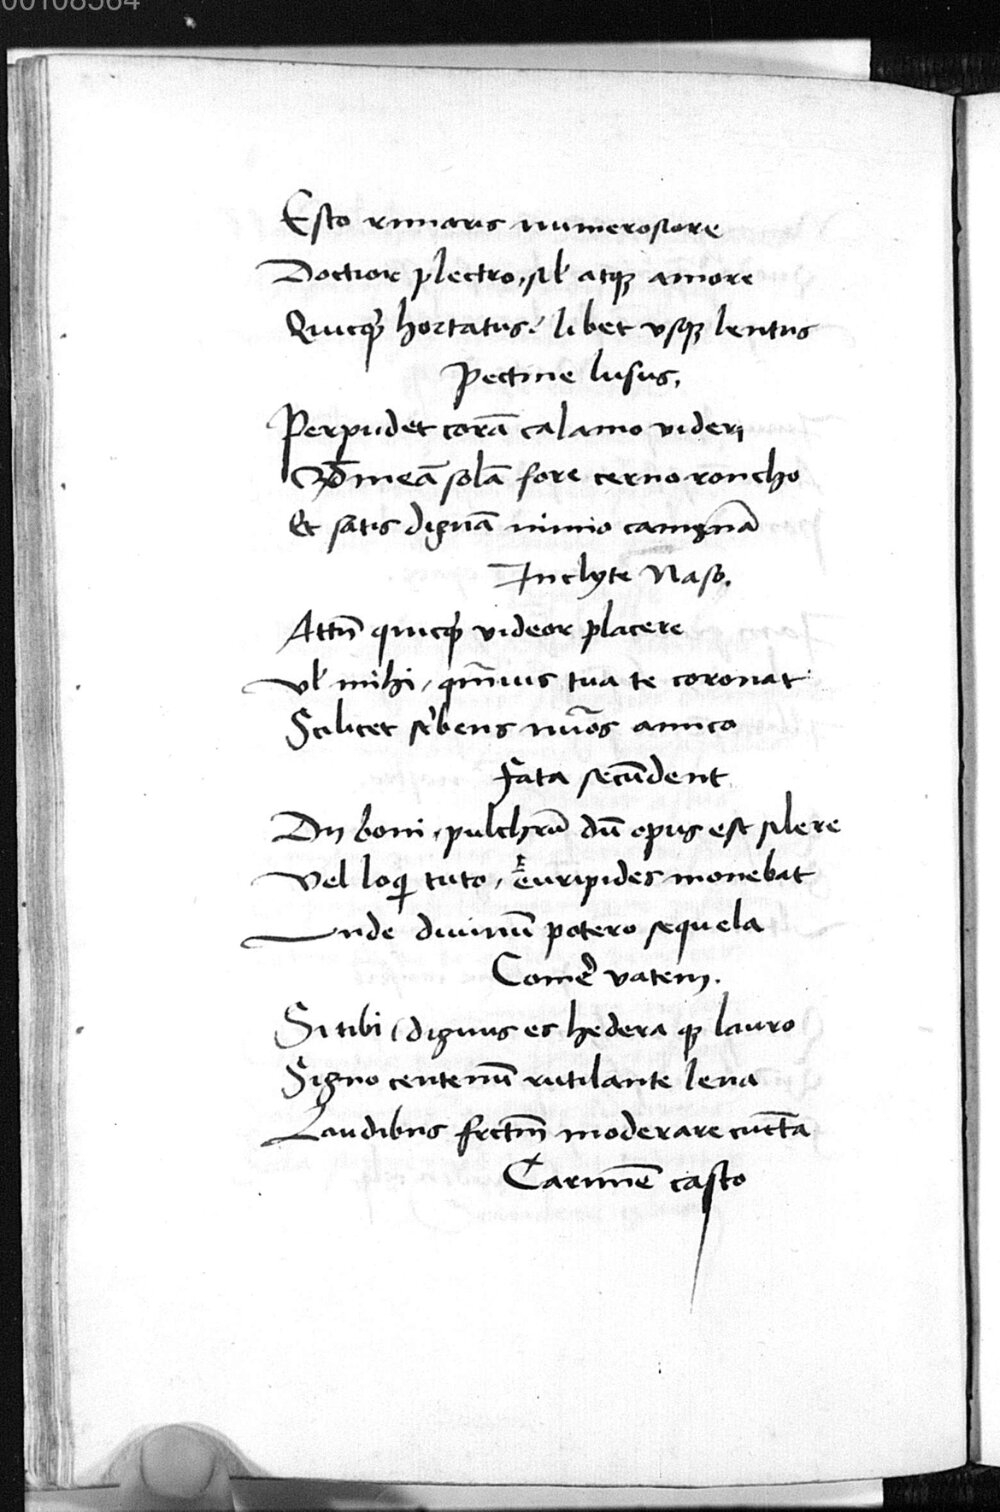 00108564
Esto rimaris numerosiore
Doctior plectro, sił atqꝫ amore
Quicqͥd hortatus: libet vsqꝫ lentus
Pectine lusus,
Perpudet corā calamo videri
meā solā fore cerno roncho
Et satis dignā nimio camęnā
Inclyte Naso.
Attñ quicqͥd videor placere
Vł mihi, tua te coronat
Scilicet nr̄os amico
Fata secūdent
Dij boni, pulchrū dū opus est silere
Vel loqͥ tuto, Euripides monebat
Unde diuinū potero sequela
vatem.
Si tibi, dignus es hedera qꝫ lauro
Signo centenū rutilante lena
Laudibus moderare cūcta
Carmīe casto